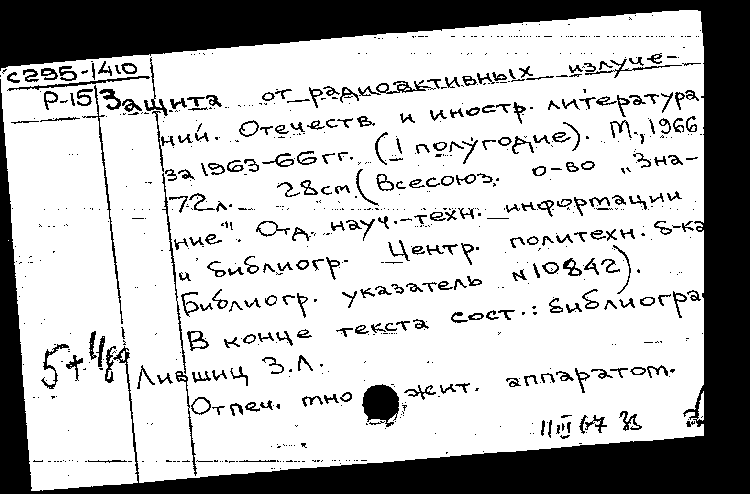 С295-1410
Р-15 Защита от радиоактивных излуче-
ний. Отечеств. и иностр. литература
за 1963-66 гг. (I полугодие). М., 1966
72 л. 28 см (Всесоюз. о-во "Зна-
ние". Отд. науч.-техн. информации
и библиогр. Центр. политехн. б-ка
Библиогр. указатель №10842).
В конце текста сост.: библиогра
Лившиц З.Л.
Отпеч. мно жит. аппаратом.